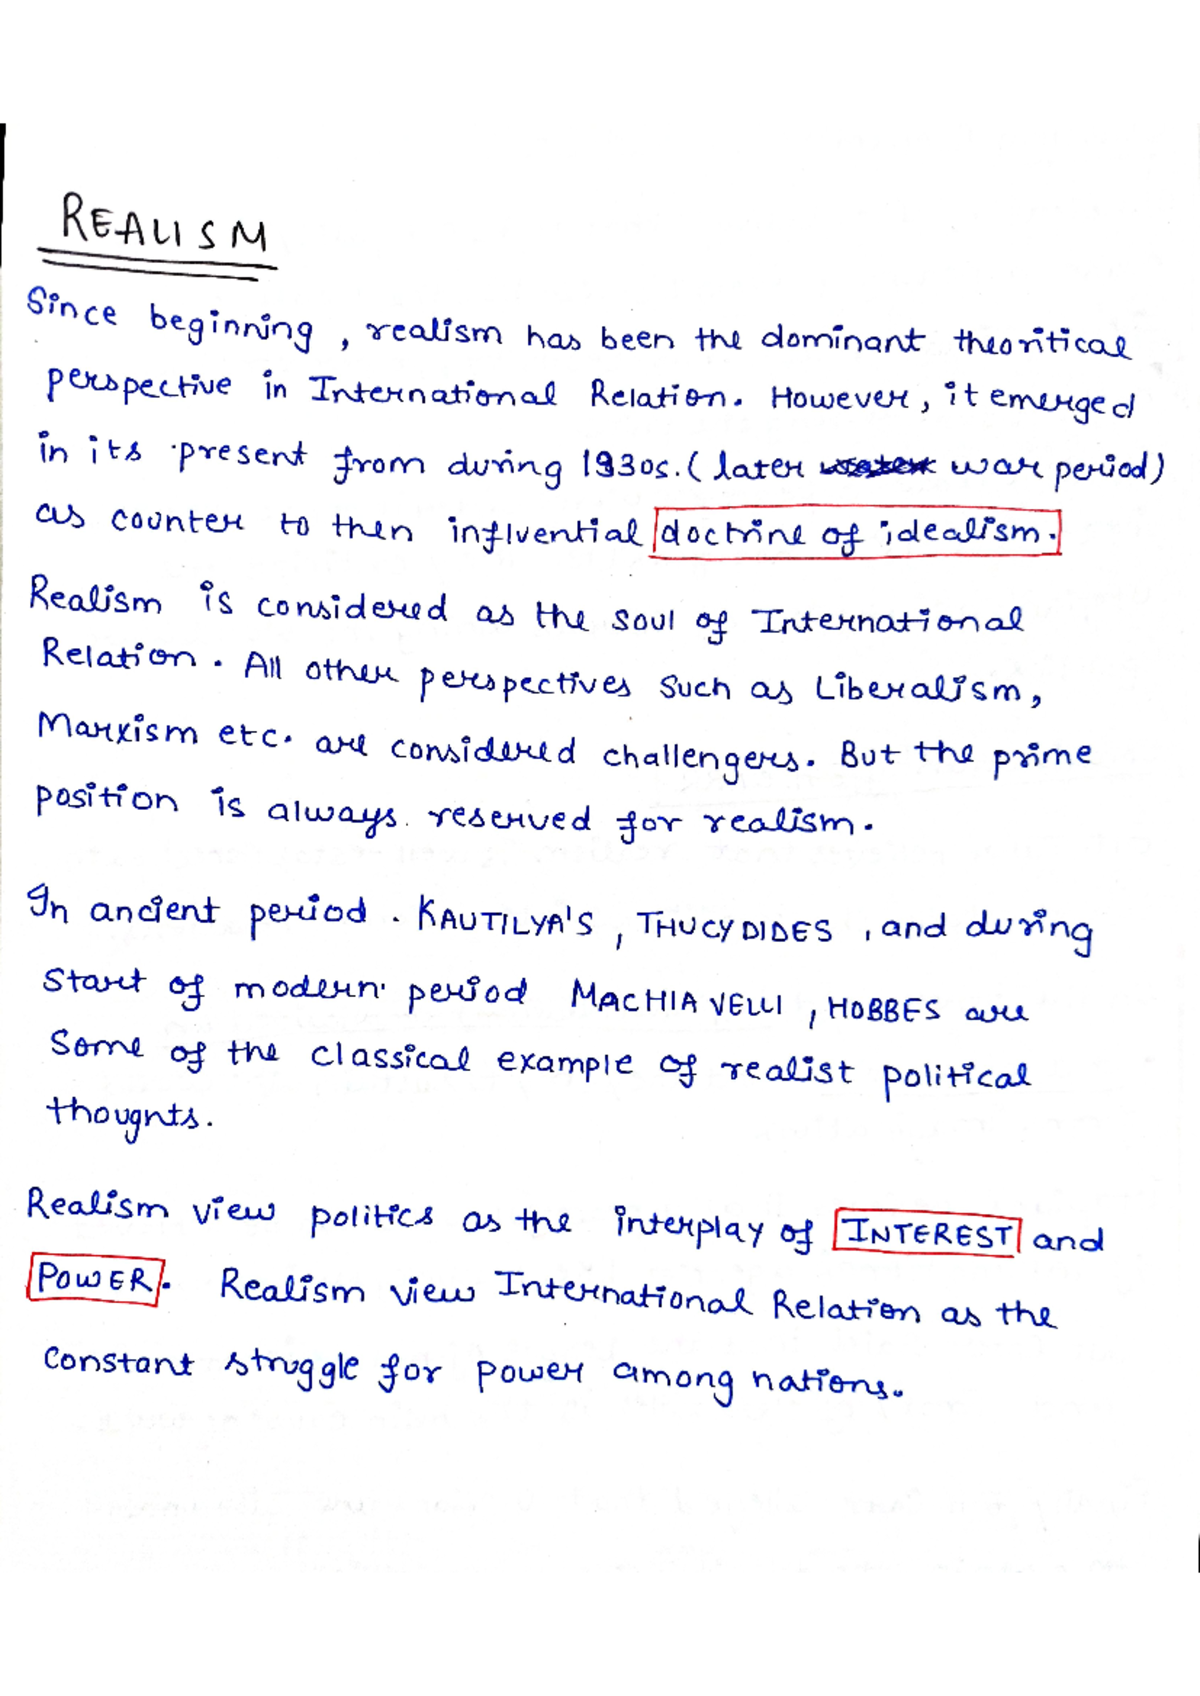 REALISM
Since beginning, realism has been the dominant theoritical
perspective in International Relation. However, it emerged
in its present from during 1930s. (later war period)
as counter to then influential doctrine of idealism.
Realism is considered as the soul of International
Relation. All other perspectives such as Liberalism,
Marxism etc. are considered challengers. But the prime
position is always reserved for realism.
In ancient period. KAUTILYA'S, THUCYDIDES, and during
start of modern period MACHIAVELLI, HOBBES are
Some of the classical example of realist political
thoughts.
Realism view politics as the interplay of INTEREST and
POWER. Realism view International Relation as the
constant struggle for power among nations.